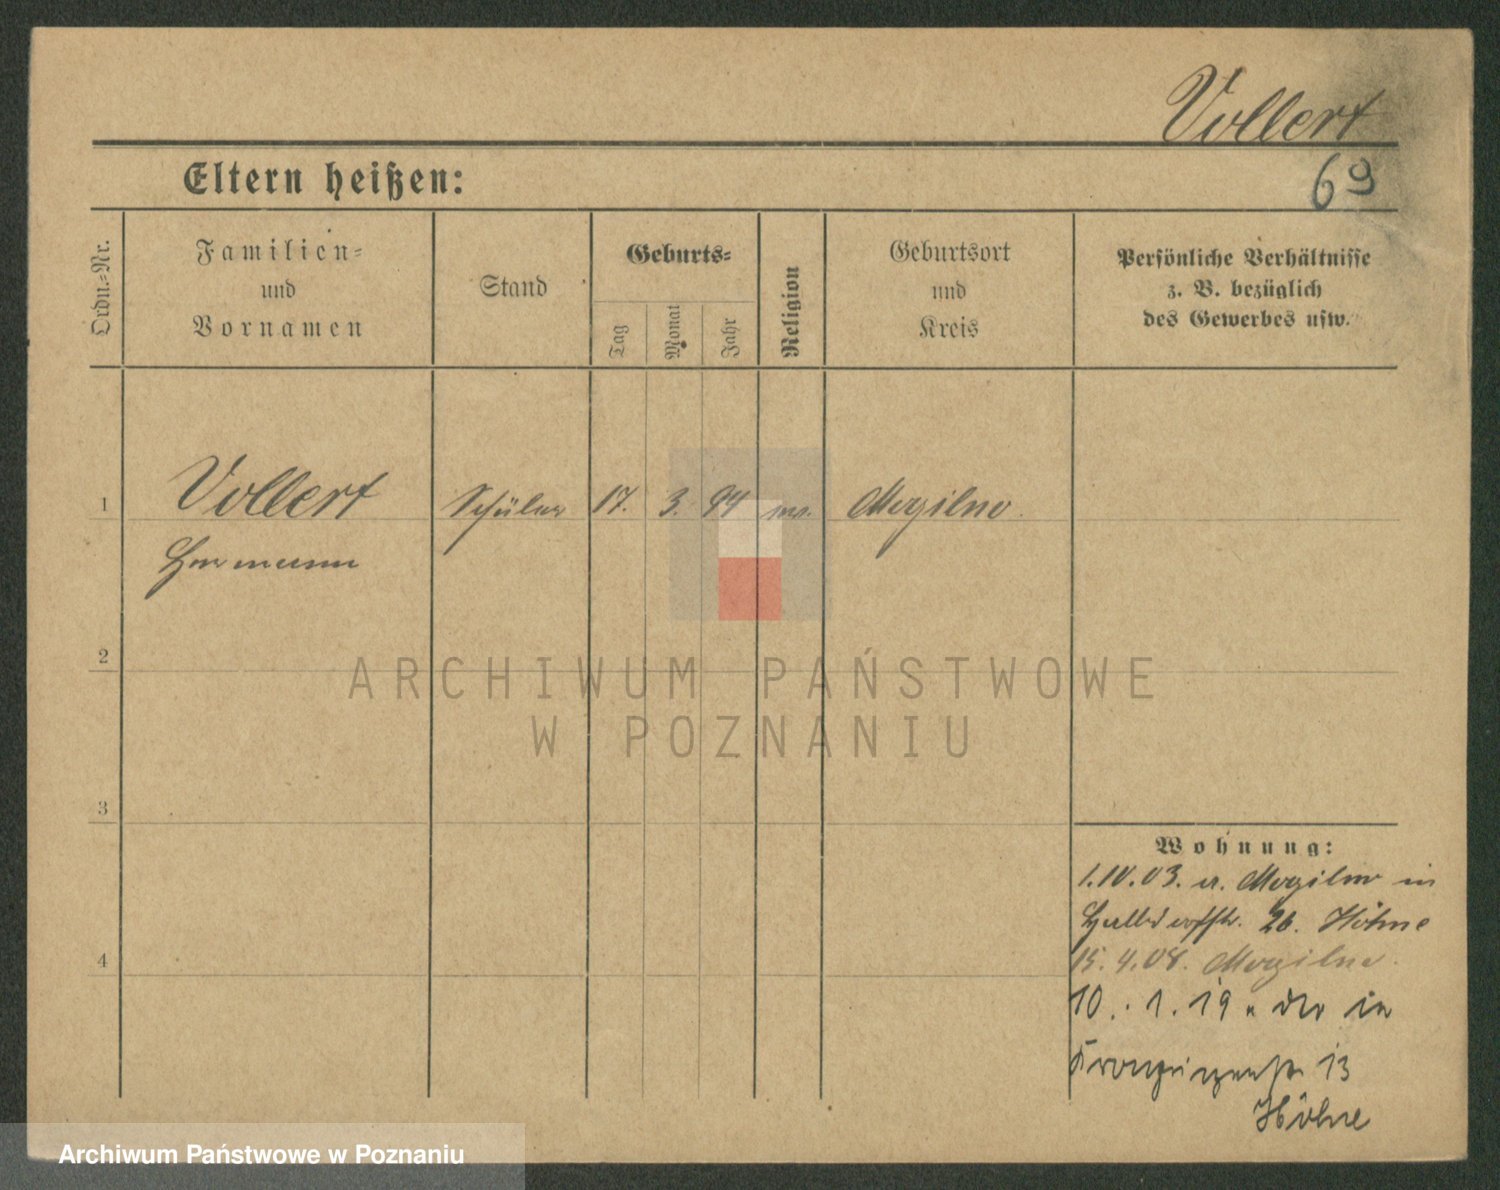 Vollert
69
Eltern heißen:
Ordn.-Nr.
Familien-
und
Vornamen
Stand
Geburts-
Tag
Monat
Jahr
Religion
Geburtsort
und
Kreis
Persönliche Verhältnisse
z. B. bezüglich
des Gewerbes usw.
1
Vollert
Schüler
17.
3.
94
Mogilno.
Hermann
2
ARCHIWUM PAŃSTWOWE
W POZNANIU
3
Wohnung:
1.10.03. a. Mogilno in
26. Höhne
4
15.4.08. Mogilno.
10. 1. 19 in
Kronprinzenstr 13
Höhne
Archiwum Państwowe w Poznaniu